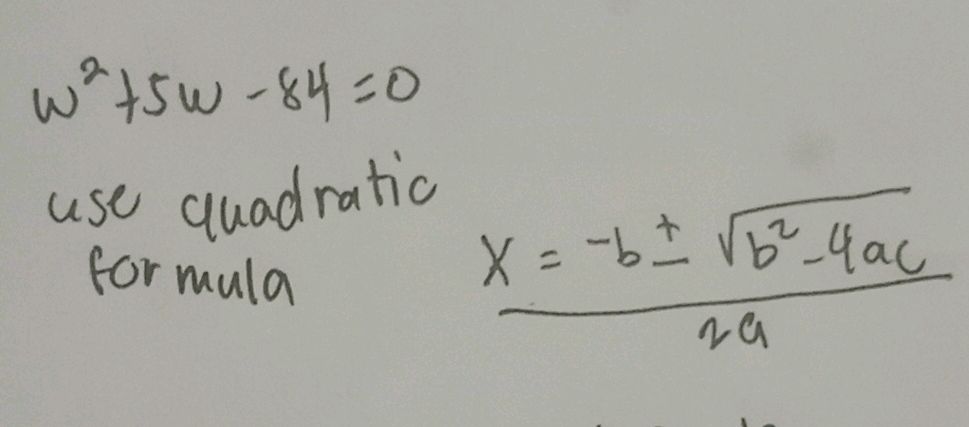 w² + 5w - 84 = 0
use quadratic
formula
x = -b ± √b² - 4ac
2a